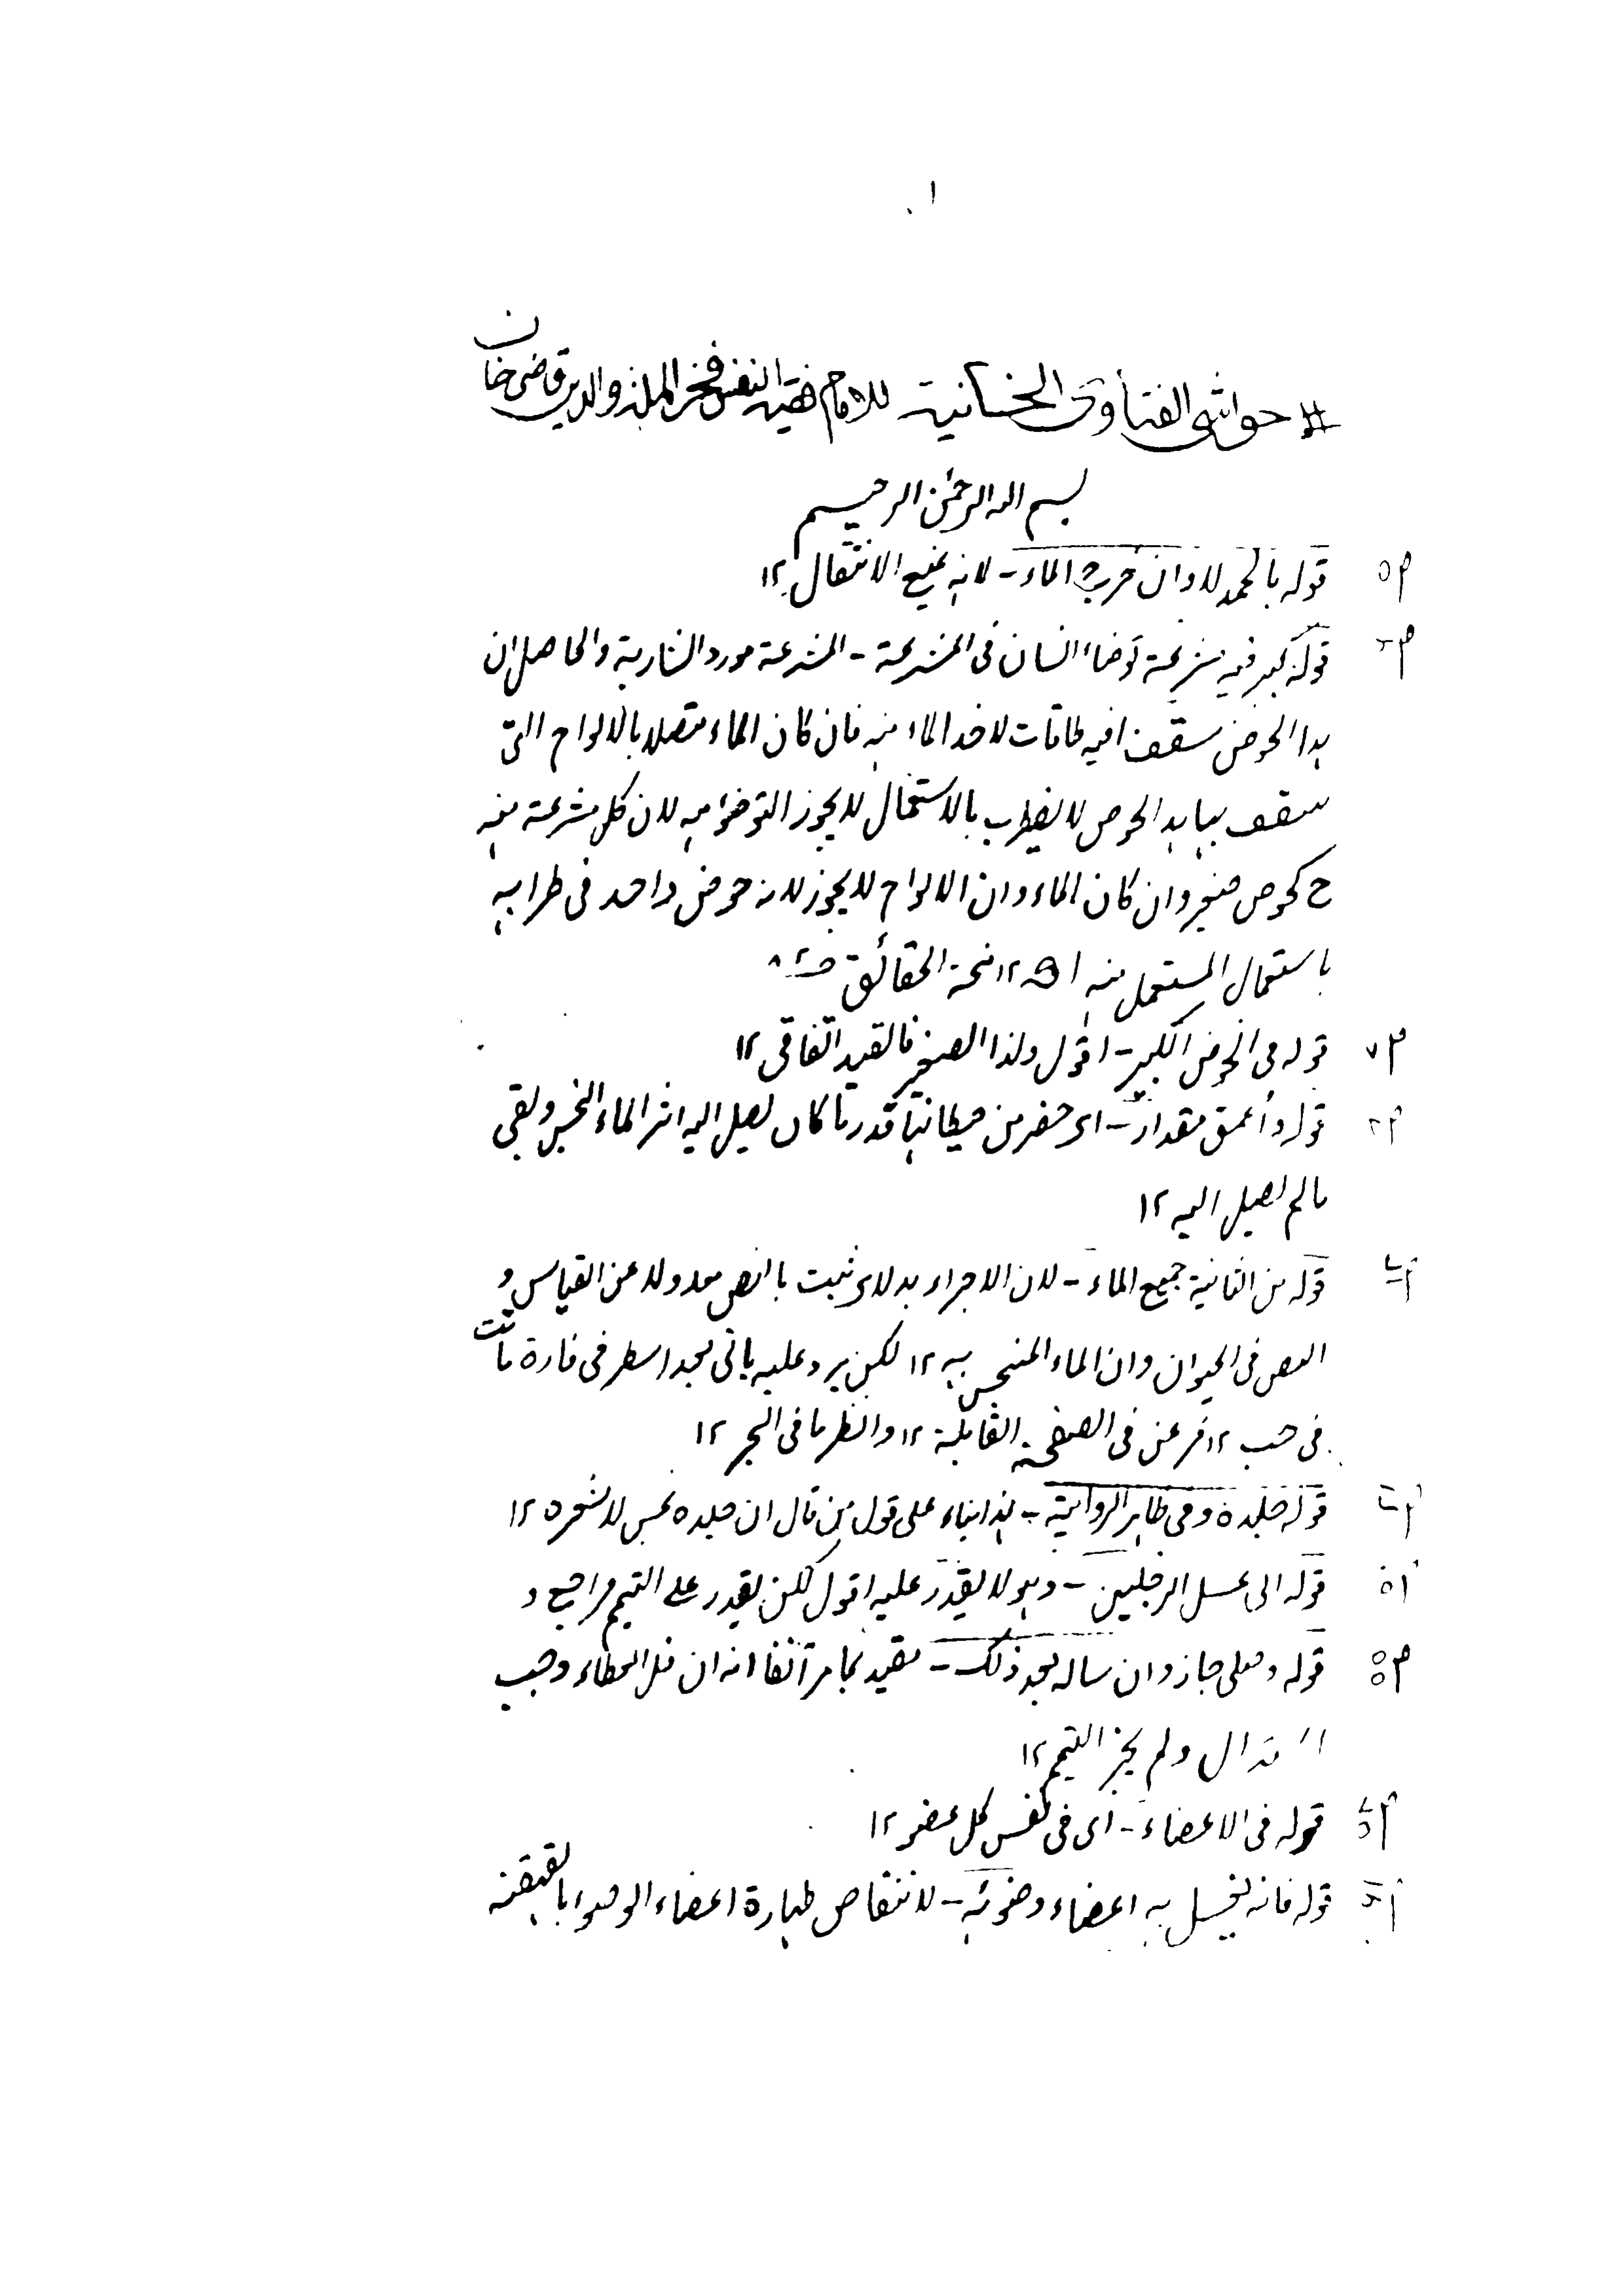 ١
حواشى الفتاوى الخانية للامام فقيه النفس فخر الملة والدين قاضى خان
بسم الله الرحمٰن الرحيم
م٥ قوله بالجمد لا وان حرك الماء - لانه يمنع الانتقال ١٢
قوله كبير فيه مشرعة توضاء انسان فى المشرعة - المشرعة مورد الشاربة والحاصل ان
هذا الحوض سقف افيه طاقات لاخذ الماء منه فان كان الماء متصلا بالالواح التى
سقف بها هذا الحوض لا يضطرب بالاستعمال لا يجوز التوضؤ منه لان كل مشرعة منه
ح كحوض صغير وان كان الماء دون الالواح لا يجوز لانه حوض واحد فى طرابه
باستعمال المستعمل منه اھ ١٢ منحة الحقائق
م٧ قوله فى الحوض الكبير - اقول ولذا الصغير فالقيد اتفاقى ١٢
قوله واعمق مقدار - اى حفر من حيطانها قدر ما كان يصل اليه اثر الماء النجس وبقى
مالم يصل اليه ١٢
قوله من الثانية جميع الماء - لان الاجزاء بدلاء ثبت بالنص معدولا عن القياس و
النص فى الحيوان دون الماء المتنجس به ١٢ لكن يرد عليه ياتى بعد اسطر فى فارة ماتت
فى حب ١٢ فرعن فى الصفحة القابلة ١٢ وانظر ما فى البحر ١٢
قوله جلده وفى ظاهر الرواية - هذا بناء على قول من قال ان جلده نجس لا شعره ١٢
قوله الى غسل الرجلين - وهو لا يقدر عليه اقول لكن يقدر على التيمم فراجع و
م٥٥ قوله وصلى جاز وان ساله بعد ذلك - مقيد بما مر آنفا انه ان ظن العطاء وجب
السوال ولم يجز التيمم ١٢
قوله فى الاعضاء - اى فى نفس كل عضو ١٢
قوله فانه يغسل به اعضاء وضوئه - لانتقاض طهارة اعضاء الوضوء بالقهقهة